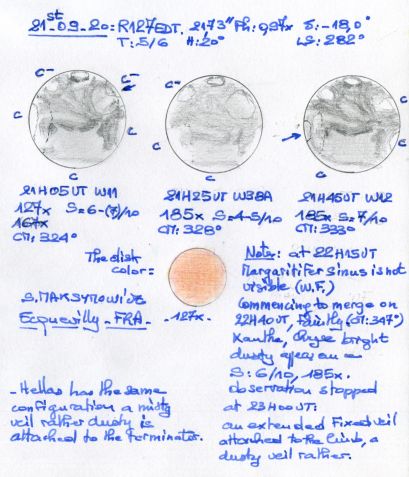 21st-09-20: R127EDT. 21,73" Ph: 997x S: -18,0°
T: 5/6 H: 20° LS: 282°
C- C-
C C C
C C
21H05UT W11 21H25UT W38A 21H45UT W12
127x S=6-(7)/10 185x S=4-5/10 185x S=7/10
167x
CM: 324° CM: 328° CM: 333°
The disk
color=
S. MAKSYMOWICZ
Ecquevilly-FRA.
-127x-
Note: at 22H15UT
Margaritifer sinus is not
visible (W.F.)
Commencing to merge on
22H40UT, Faintly (CM: 347°)
Xanthe, Chryse bright
dusty
S: 6/10, 185x.
observation stopped
at 23H00UT:
an extended Fixed veil
attached to the limb, a
dusty veil rather.
-Hellas has the same
configuration a misty
veil rather dusty is
attached to the terminator.